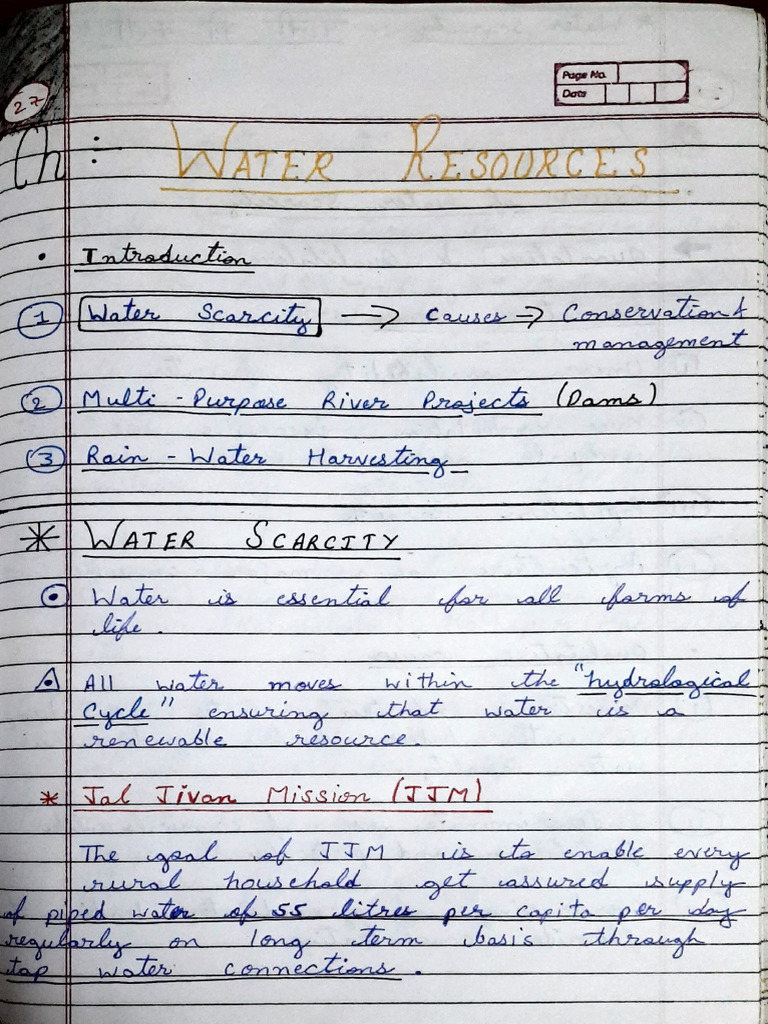 27
Page No.
Date
Ch :- WATER RESOURCES
• Introduction
1 Water Scarcity → Causes → Conservation &
management
2 Multi - Purpose River Projects (Dams)
3 Rain - Water Harvesting
* WATER SCARCITY
Water is essential for all forms of
life.
All water moves within the "hydrological
Cycle" ensuring that water is a
renewable resource.
* Jal Jivan Mission (JJM)
The goal of JJM is to enable every
rural household get assured supply
of piped water of 55 litres per capita per day
regularly on long term basis through
tap water connections.